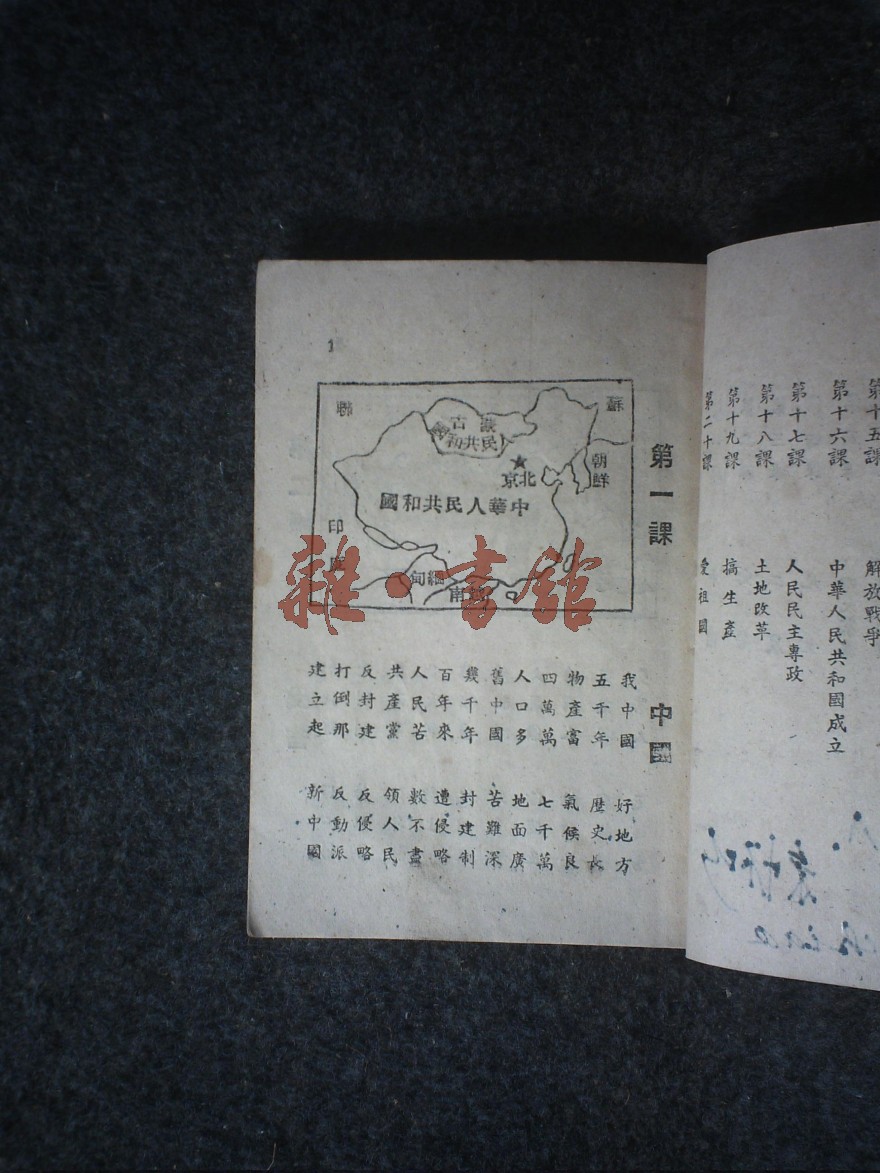 第十五課 解放戰爭
第十六課 中華人民共和國成立
第十七課 人民民主專政
第十八課 土地改革
第十九課 搞生產
第二十課 愛祖國
第一課 中國
1
蘇聯
蒙古人民共和國
朝鮮
北京
中華人民共和國
印
緬甸
南
雜·書館
我中國 好地方
五千年 歷史長
物產富 氣候良
四萬萬 七千萬
人口多 地面廣
舊中國 苦難深
幾千年 封建制
百年來 遭侵略
人民苦 數不盡
共產黨 領人民
反封建 反侵略
打倒那 反動派
建立起 新中國